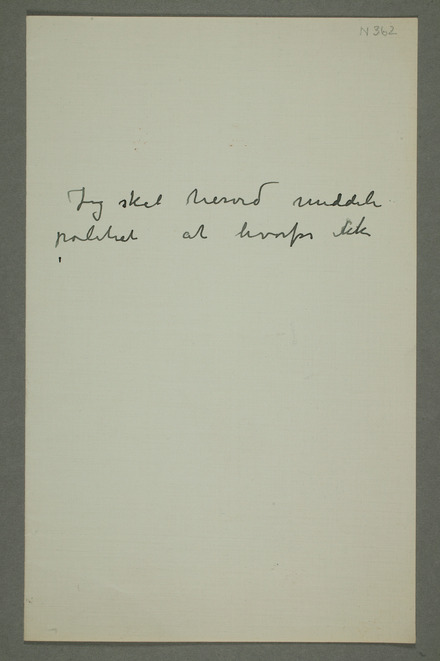 N 362
Jeg skal herved meddele
politiet at hvorfor ikke